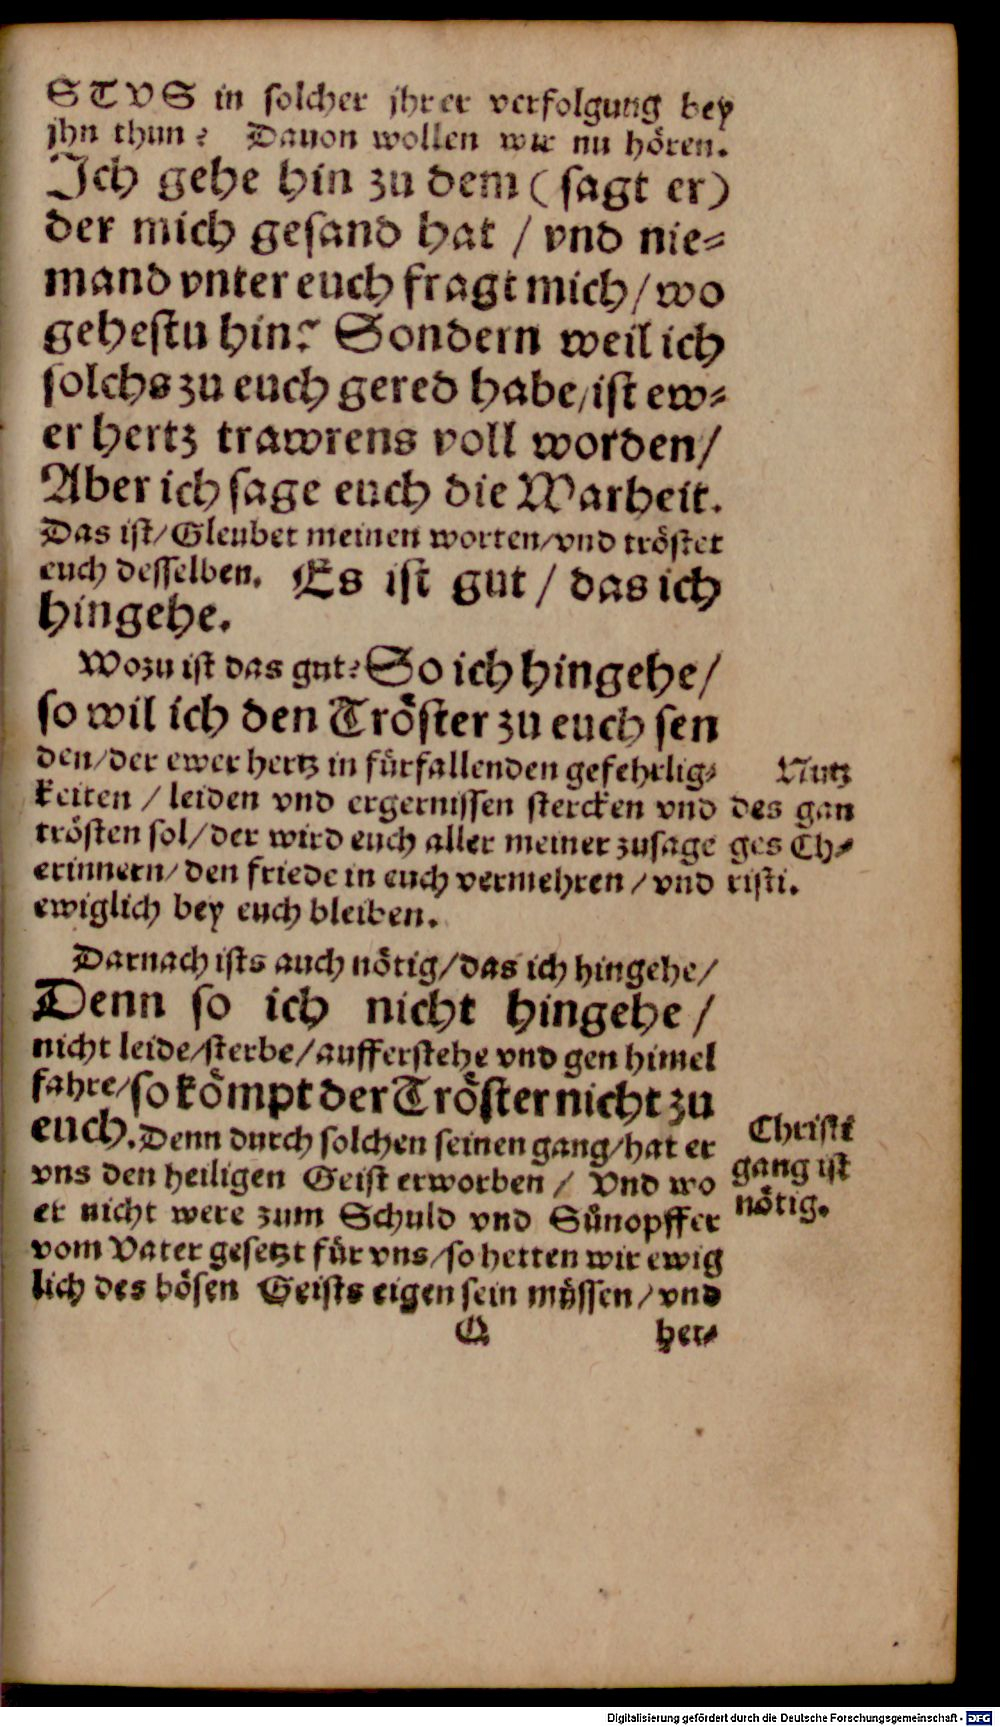 STVS in solcher jhrer verfolgung bey
jhn thun? Dauon wollen wir nu hören.
Ich gehe hin zu dem (sagt er)
der mich gesand hat / vnd nie-
mand vnter euch fragt mich / wo
gehestu hin? Sondern weil ich
solchs zu euch gered habe / ist ew-
er hertz trawrens voll worden /
Aber ich sage euch die Warheit.
Das ist / Gleubet meinen worten / vnd tröstet
euch desselben. Es ist gut / das ich
hingehe.
Wozu ist das gut? So ich hingehe /
so wil ich den Tröster zu euch sen
den / der ewer hertz in fürfallenden gefehrlig-
keiten / leiden vnd ergernissen stercken vnd
trösten sol / der wird euch aller meiner zusage
erinnern / den friede in euch vermehren / vnd
ewiglich bey euch bleiben.
Nutz
des gan
ges Ch-
risti.
Darnach ists auch nötig / das ich hingehe /
Denn so ich nicht hingehe /
nicht leide / sterbe / aufferstehe vnd gen himel
fahre / so kömpt der Tröster nicht zu
euch. Denn durch solchen seinen gang / hat er
vns den heiligen Geist erworben / Vnd wo
er nicht were zum Schuld vnd Sünopffer
vom Vater gesetzt für vns / so hetten wir ewig
lich des bösen Geists eigen sein müssen / vnd
Christi
gang ist
nötig.
Q her-
Digitalisierung gefördert durch die Deutsche Forschungsgemeinschaft - DFG